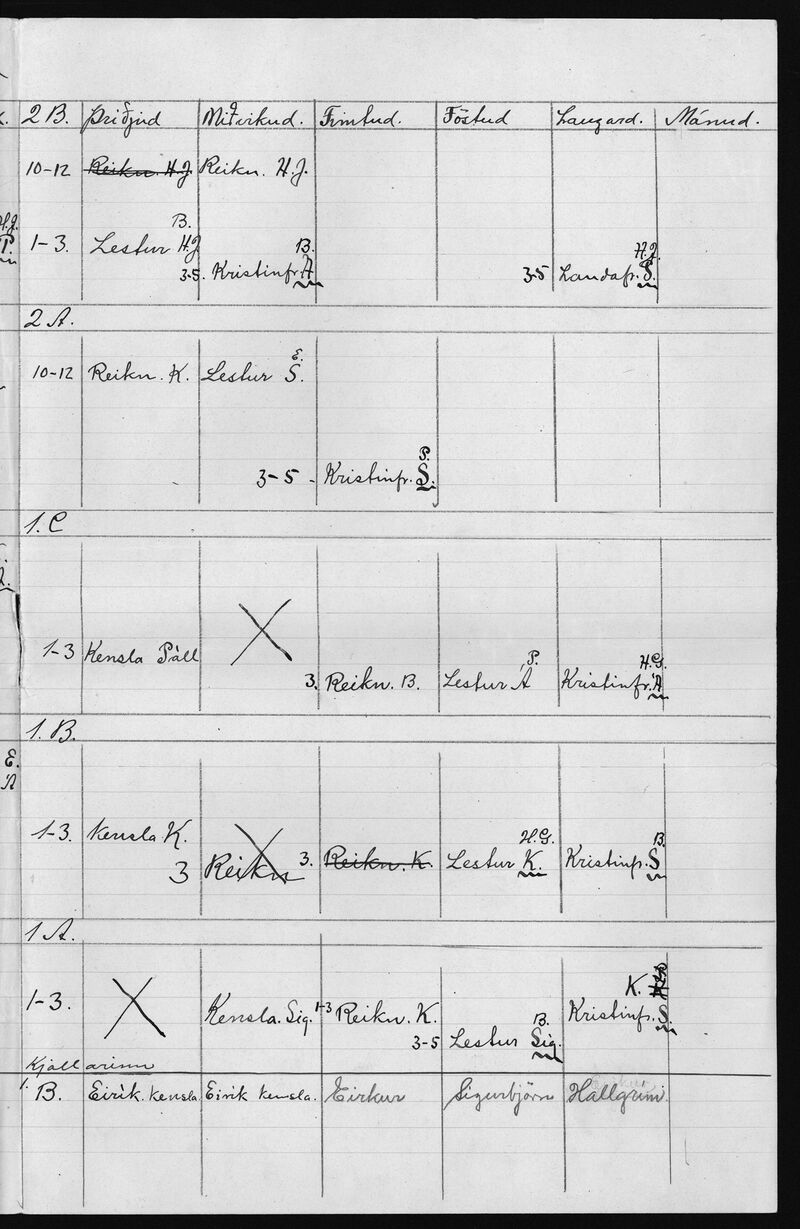 2 B. Þriðjud Miðvikud. Fimtud. Föstud Laugard. Mánud.
10-12 Reikn. H.J Reikn. H.J.
B.
H.J. 1-3. Lestur H.J B. H.J.
P. 3-5. Kristinfr. Á 3-5 Landafr. S.
2 A.
E.
10-12 Reikn. K. Lestur S.
P.
3-5 - Kristinfr. S.
1. C
P. H.G.
1-3 Kensla Páll
3. Reikn. B. Lestur Á Kristinfr. Á
1. B.
E.
1-3. Kensla K. H.G. B.
3 Reikn 3. Reikn. K. Lestur K. Kristinfr. S
1 A.
K.
1-3. Kensla. Sig. 1-3 Reikn. K. B. Kristinfr. S.
3-5 Lestur Sig.
Kjallarinn
1. B. Eirík. kensla. Eirík kensla. Eirkur Sigurbjörn Hallgrím